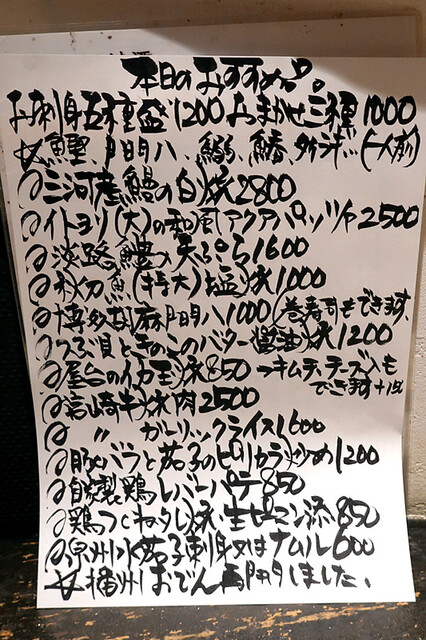 本日のおすすめ品。
お刺身五種盛り1200 おまかせ三種1000
鰹、〆明八、鰯、鰆、タイラギ…(一人前)
三河産鰻の白焼2800
イトヨリ(大)の和風アクアパッツァ2500
淡路鱧の天ぷら1600
秋刀魚(特大)塩焼1000
博多胡麻〆明八1000(巻寿司もできます、
つぶ貝ときのこのバター醤油焼1200
屋台のイカ玉焼850→キムチ、チーズ入も
できます+150
宮崎牛焼肉2500
〃 ガーリックライス1600
豚バラと茄子のピリカラ炒め1200
自家製鶏レバーパテ850
鶏つくねタレ焼・生ピーマン添850
泉州水茄子刺身又はナムル600
播州おでん再開しました、